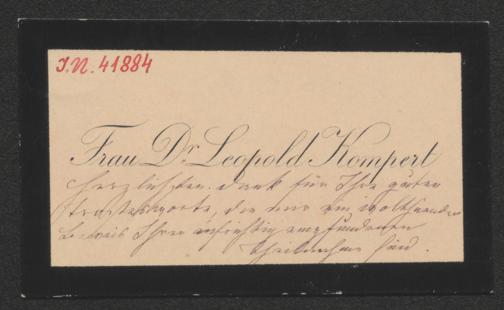 I.N. 41884
Frau Dr. Leopold Kompert
herzlichsten Dank für Ihre guten
Trostesworte, die mir ein wolthuender
Beweis Ihrer aufrichtig empfundenen
Theilnahme sind.